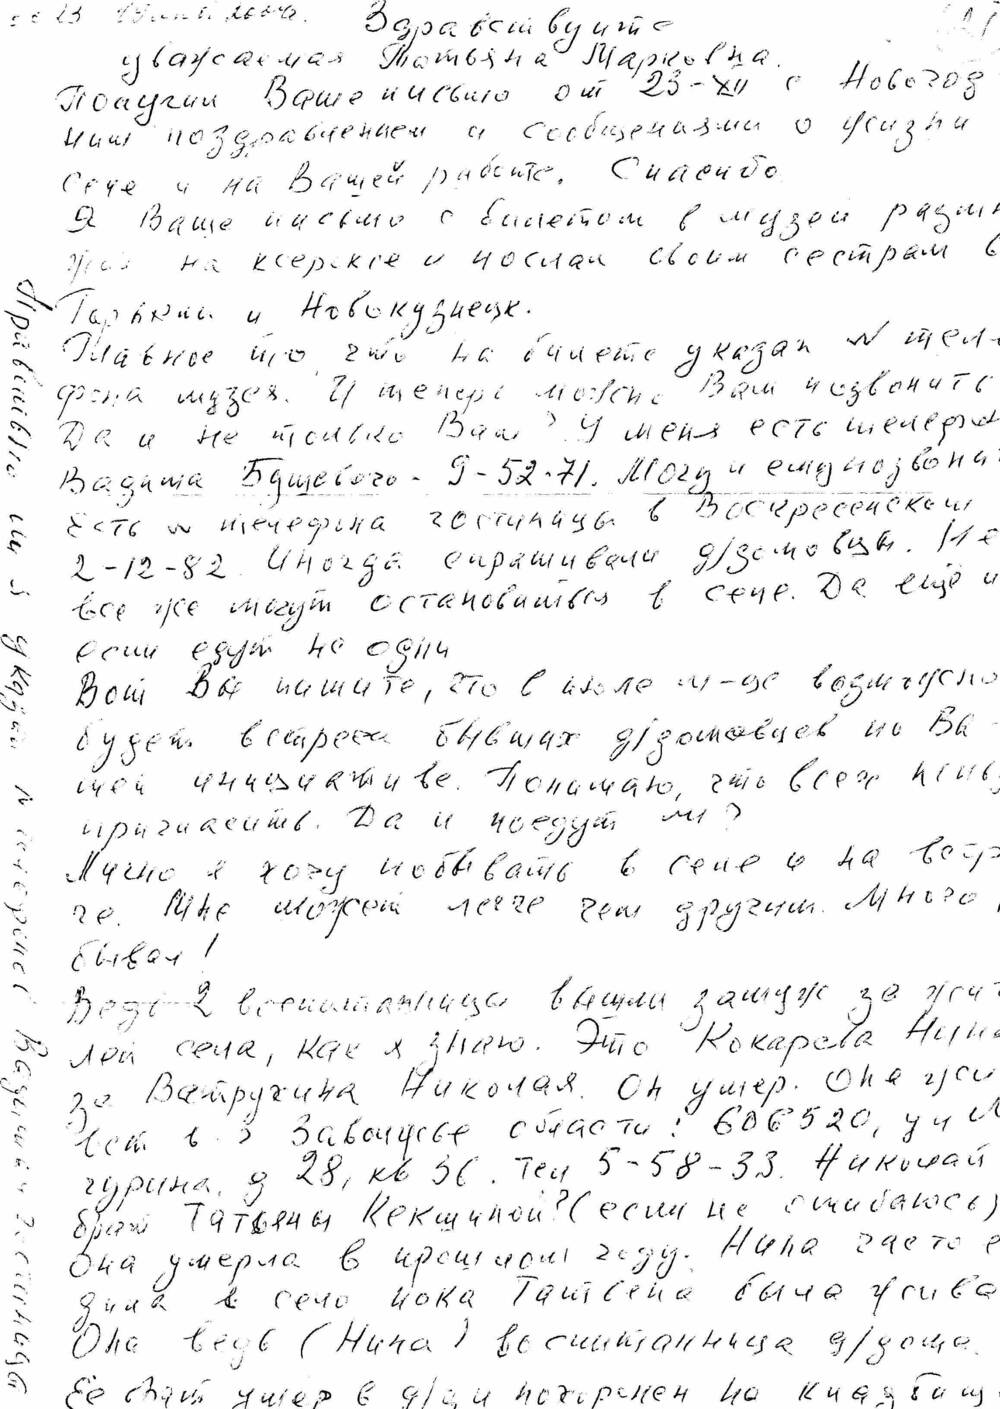 Здравствуйте
уважаемая Татьяна Марковна.
Получил Ваше письмо от 23-XII с Новогод
ним поздравлением и сообщениями о жизни
селе и на Вашей работе. Спасибо
Я Ваше письмо с билетом в музей размн
жил на ксероксе и послал своим сестрам в
Горький и Новокузнецк.
Главное то, что на билете указан № теле
фона музея. И теперь можно Вам позвонить
Да и не только Вам? У меня есть телефон
Вадима Бушевого - 9-52-71. Могу и ему позвонит
Есть № телефона гостиницы в Воскресенском
2-12-82. Иногда спрашивали д/домовцы. Не
все же могут остановиться в селе. Да ещё и
если едут не одни
Вот Вы пишите, что в июле м-це возможно
будет встреча бывших д/домовцев по Ва-
шей инициативе. Понимаю, что всех нельз
пригласить. Да и поедут ли?
Лично я хочу побывать в селе и на встр
че. Мне может легче чем другим. Много
бывал!
Ведь 2 воспитанницы вышли замуж за жит
лей села, как я знаю. Это Кокарева Нина
за Ватрухина Николая. Он умер. Она жи
вет в г Заволжье области: 606520, ул М
чурина, д 28, кв 36. Тел 5-58-33. Николай
брат Татьяны Кекшиной? (если не ошибаюсь)
Она умерла в прошлом году. Нина часто е
дила в село пока Татьяна была жива
Она ведь (Нина) воспитанница д/дома.
Её брат умер в д/д и похоронен на кладбищ
Правильно ли я указал № телефонов Вадима и гостиницы